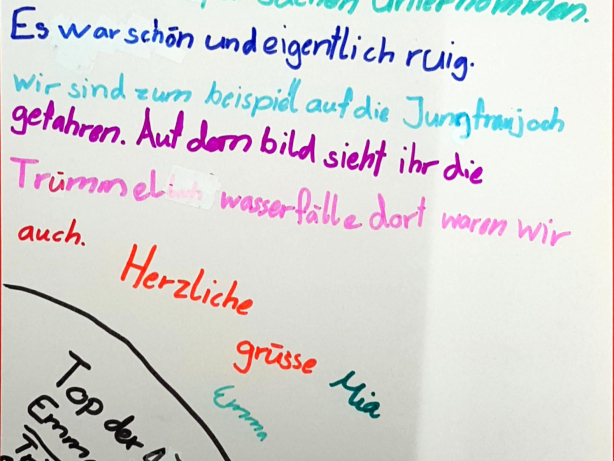 sachen unternommen.
Es war schön und eigentlich ruig.
wir sind zum beispiel auf die Jungfraujoch
gefahren. Auf dem bild sieht ihr die
Trümmel wasserfälle dort waren wir
auch.
Herzliche
grüsse Mia
Emma
Top der
Emm